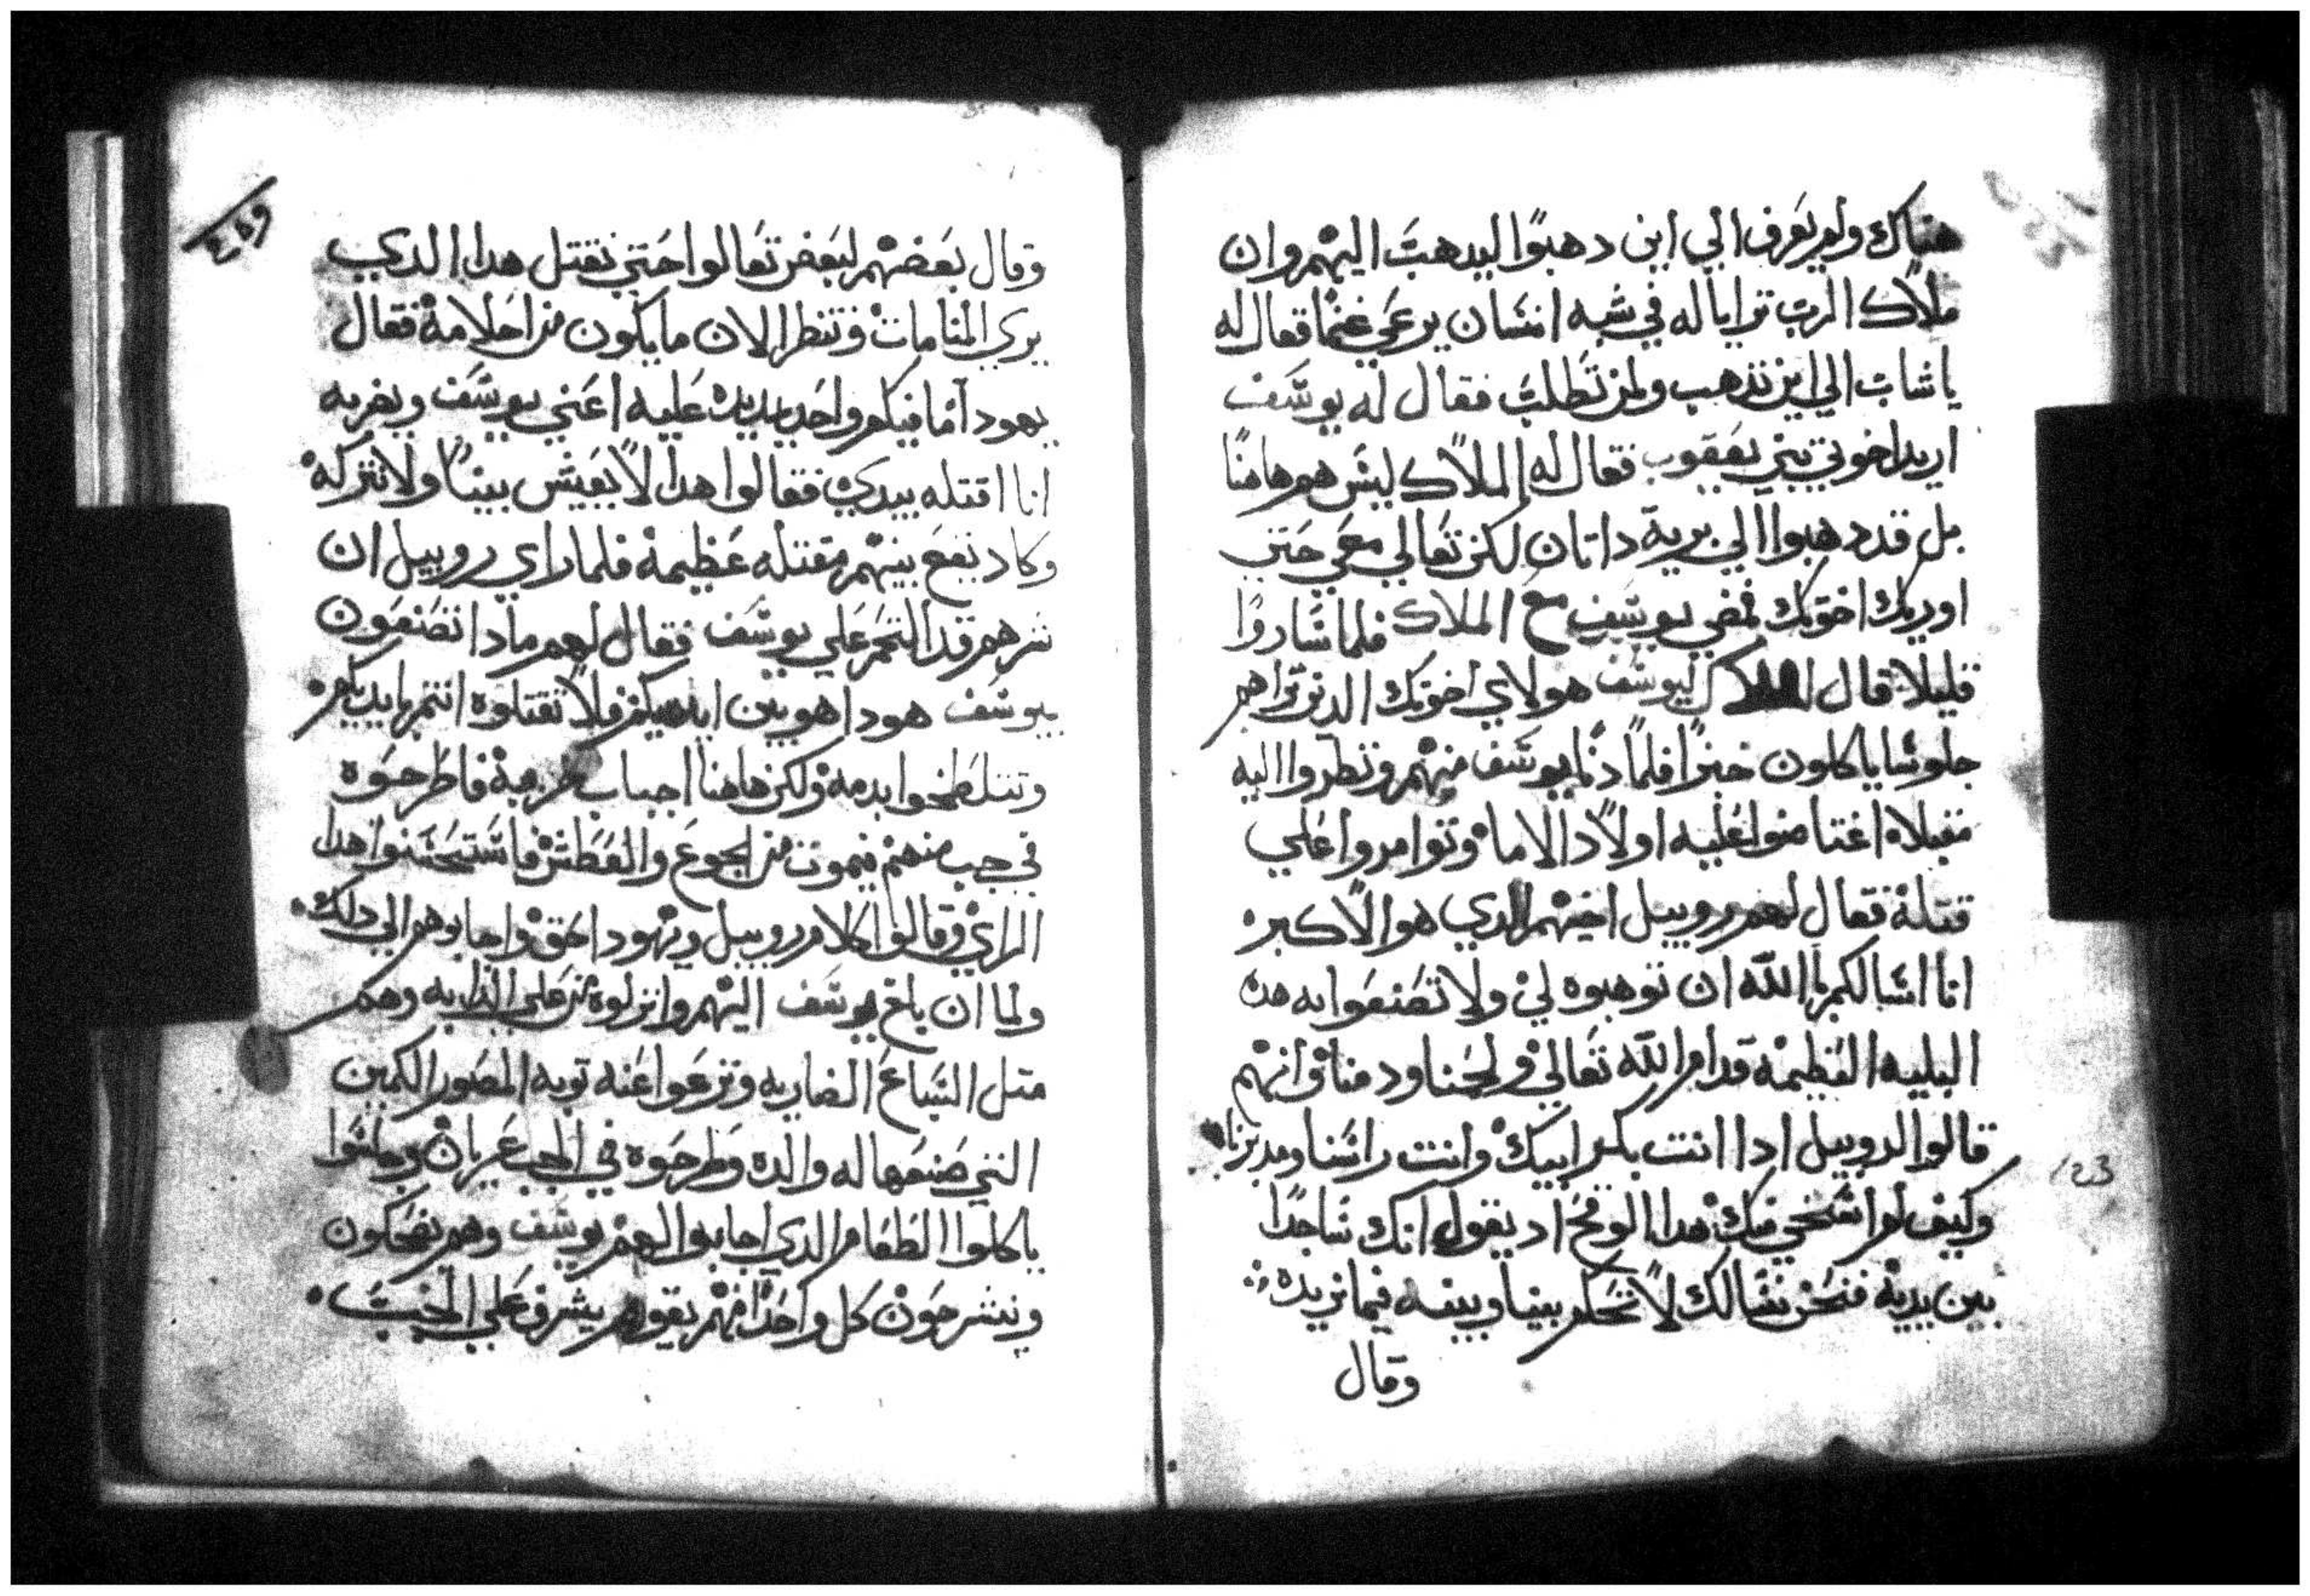 هناك ولم يعرف الي اين دهبوا ليدهب اليهم وان
ملاك الرب ترايا له في شبه انسان يرعي غنما فقال له
يا شاب الي اين تذهب ولمن تطلب فقال له يوسف
اريد اخوتي بني يعقوب فقال له الملاك ليس هم هاهنا
بل قد دهبوا الي برية داتان لكن تعالي معي حتي
اوريك اخوتك فمضي يوسف مع الملاك فلما ساروا
قليلا قال الملاك ليوسف هولاي اخوتك الدين تراهم
جلوسا ياكلون خبزا فلما دنا يوسف منهم ونظروا اليه
مقبلا اغتامنوا عليه اولاد الاما وتوامروا علي
قتلة فقال لهم روبيل اخيهم الدي هوالاكبر
انا اسالكم بالله ان توهبوه لي ولا تصنعوا به هده
البليه العظيمة قدام الله تعالي ولحمنا ودمنا وانهم
قالوا لروبيل ادا انت بكر ابيك وانت راسنا ومدبرنا
وكيف لم استحي منك هدا الوقح اد يقول انك ساجدا
بين يدية فنحن نسالك لا تحكم بيننا وبينه فيما نريده
وقال
123
وقال بعضهم لبعض تعالوا حتي نقتل هدا الدي
يري المنامات وننظر الان ما يكون من احلامة فقال
يهودا ما فيكم واحد يمد يده عليه اعني يوسف ويضربه
انا اقتله بيدي فقالوا هدا لا يعيش بيننا ولا نتركه
وكاد يقع بينهم مقتله عظيمة فلما راي روبيل ان
شرهم قد التحم علي يوسف فقال لهم مادا تصنعون
بيوسف هودا هو بين ايديكم فلا تقتلوه انتم بايديكم
وتتلطخوا بدمة ولكن هاهنا اجباب فاطرحوه
في جب منهم فيموت من الجوع والعطش فاستحسنوا هدا
الراي وقالوا كلام روبيل ويهودا حق واجابوهم الي دلك
ولما ان بلغ يوسف اليهم وانزلوه من علي الدابه وهم
متل السباع الضاريه ونزعوا عنه توبه المصور الكمين
التي صنعها له والده وطرحوه في الجب عريان وجلسوا
ياكلوا الطعام الدي اجابوا لهم يوسف وهم يضحكون
وينشرحون كل واحدا منهم يقوم يشرف علي الجب